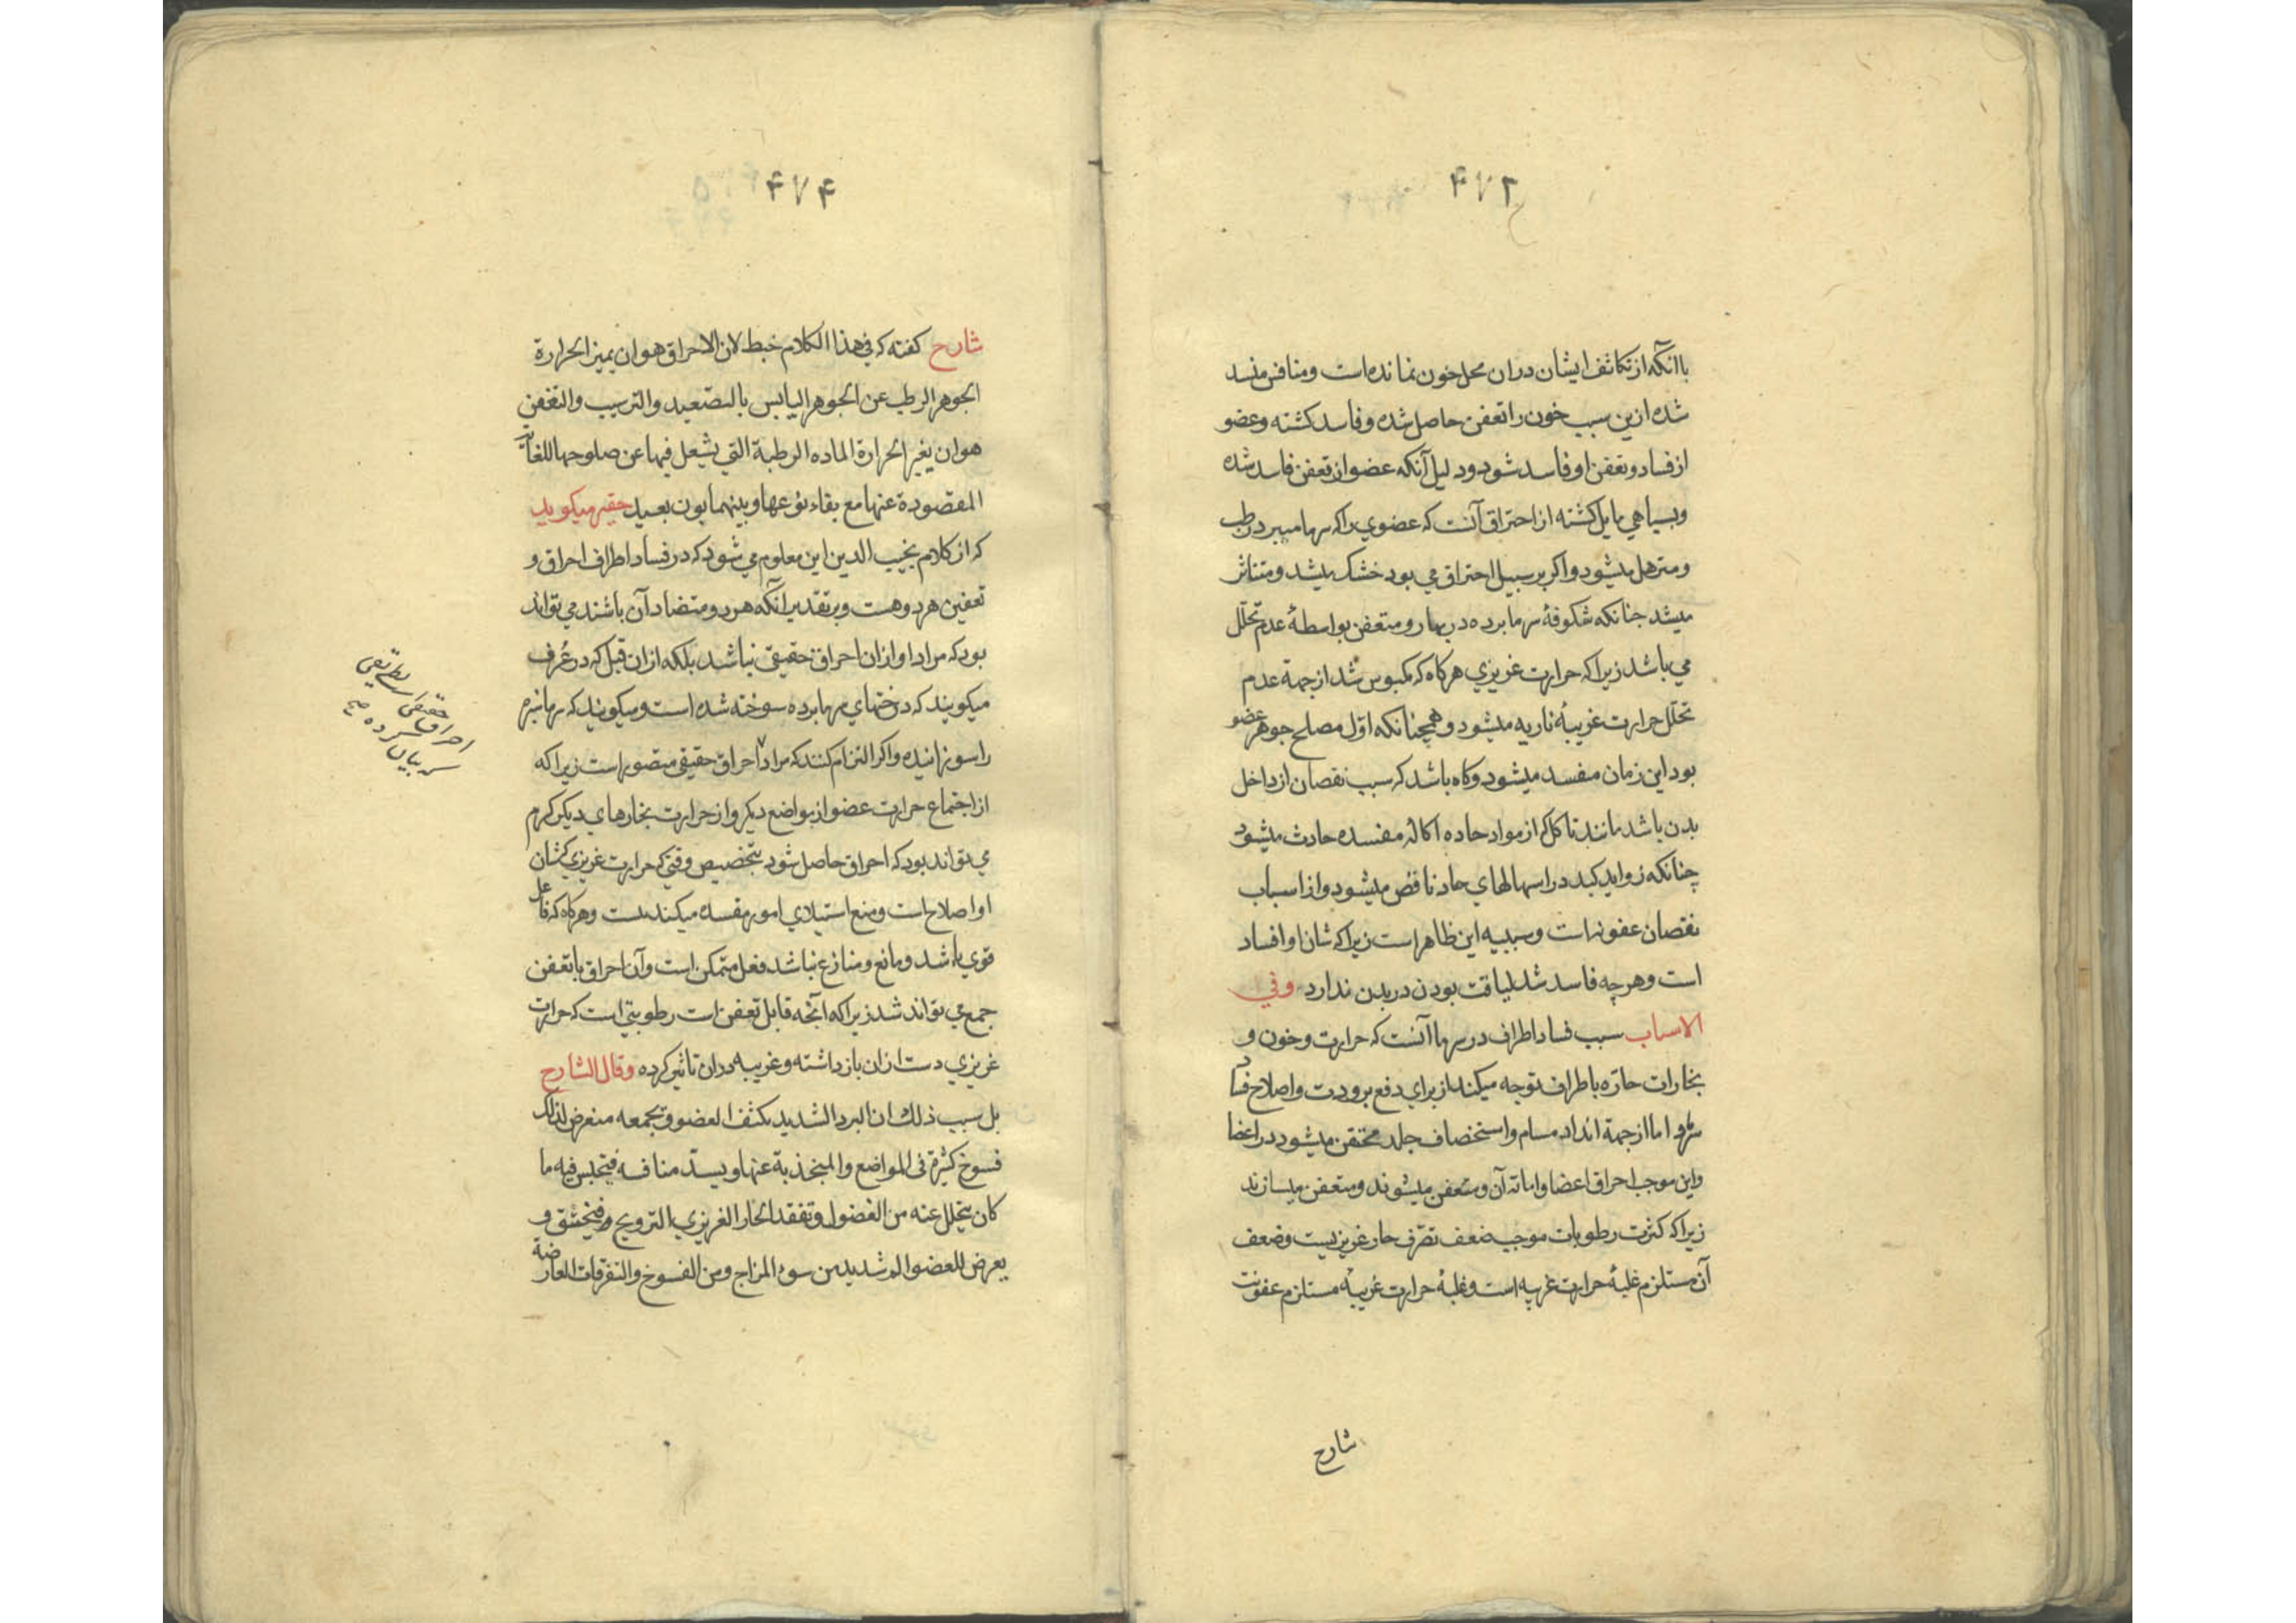 ۴۷۲
باآنکه از تکاثف ایشان دران محل خون نمانده است و منافس منسد
شده ازین سبب خون را تعفن حاصل شده و فاسد کشته و عضو
از فساد و تعفن او فاسد شود و دلیل آنکه عضو از تعفن فاسد شده
و بسیاهی مایل کشته از احتراق آنت که عضوی را که سرما میبرد رطب
و مترهل میشود و اکر بر سبیل احتراق می بود خشک میشد و متناثر
میشد جنانکه شکوفهٔ سرما برده در بهار و متعفن بواسطهٔ عدم تحلّل
می باشد زیرا که حرارت غریزی هرکاه که مکبوس شد از جهة عدم
تحلّل حرارت غریبهٔ ناریه میشود و همچنانکه اوّل مصلح جوهر عضو
بود این زمان مفسد میشود و کاه باشد که سبب نقصان از داخل
بدن باشد مانند تاکل که از مواد حاده اکالهٔ مفسده حادث میشود
چنانکه زواید کبد در اسهالهای حاد ناقص میشود و از اسباب
نقصان عفونت است و سببیه این ظاهر است زیرا که شان او افساد
است و هرچه فاسد شد لیاقت بودن در بدن ندارد وفی
الاسباب سبب فساد اطراف در سرما آنست که حرارت و خون و
بخارات حارّه باطراف توجه میکند از برای دفع برودت و اصلاح فساد
سرما و اما از جهة انداد مسام و استخصاف جلد مختقن میشود در اعضا
و این موجب احراق اعضا و اماته آن و متعفن میشوند و متعفن میسازند
زیرا که کثرت رطوبات موجب ضعف تصرّف حار غریزیست و ضعف
آن مستلزم غلبهٔ حرارت غریبه است و غلبهٔ حرارت غریبه مستلزم عفونت
شارح
۴۷۴
شارح کفته که فی هذا الکلام خبط لان الاحراق هوان یمیز الحرارة
الجوهر الرطب عن الجوهر الیابس بالتصعید والترسیب والتعفین
هوان یغیر الحرارة الماده الرطبة التی یشعل فیها عن صلوحها للغایة
المقصودة عنها مع بقاء نوعها و بینهما بون بعید حقیر میکوید
که از کلام نجیب الدین این معلوم می شود که در فساد اطراف احراق و
تعفین هردو هست و بر تقدیر آنکه هردو متضاد آن باشند می تواند
بود که مراد او ازان احراق حقیقی نباشد بلکه ازان قبل که در عُرف
میکویند که درختهای سرما برده سوخته شده است و میکویند که سرما سبزه
را سوزانیده و اکر التزام کنند که مراد احراق حقیقی متصور است زیرا که
از اجتماع حرارت عضو از مواضع دیکر و از حرارت بخارهای دیکر کرم
می تواند بود که احراق حاصل شود بتخصیص وقتی که حرارت غریزی که شان
او اصلاح است و منع استیلای امور مفسده میکند نیست و هرکاه که فاعل
قوی باشد و مانع و منازع نباشد فعل متمکن است و آن احراق با تعفن
جمع می تواند شد زیرا که آنچه قابل تعفن است رطوبتی است که حرارت
غریزی دست ازان بازداشته و غریبه دران تاثیر کرده وقال الشارح
بل سبب ذلک ان البرد الشدید یکثف العضو و یجمعه فتعرض لذلک
فسوخ کثیرة فی المواضع والمنجذبة عنها و یسدّ منافسه فیحتبس فیه ما
کان یتحلل عنه من الفضول و تفقد الحار الغریزی بالترویح فیختنق و
یعرض للعضو الم شدید من سوء المزاج و من الفسوخ والتفرقات العارضة
احراق حقیقی
کرده صح